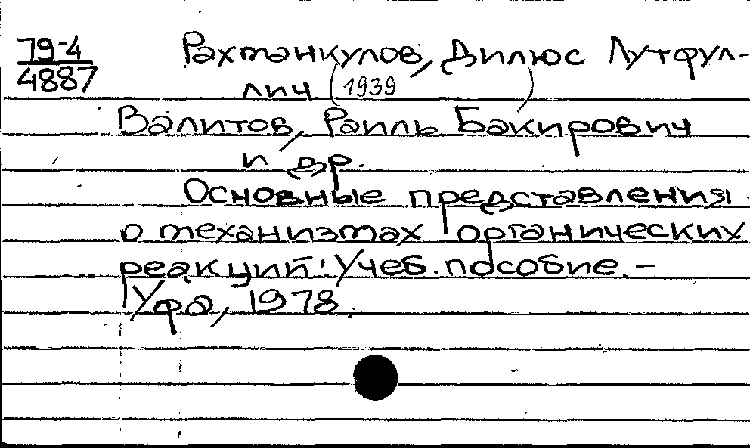 79-4
4887
Рахманкулов, Дилюс Лутфул-
лич (1939)
Валитов, Раиль Бакирович
и др.
Основные представления
о механизмах органических
реакций: Учеб. пособие. –
Уфа, 1978.